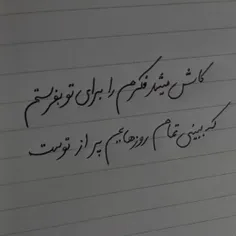 کاش میشد فکرم را برای تو بفرستم
که ببینی تمام روزهایم پر از توست